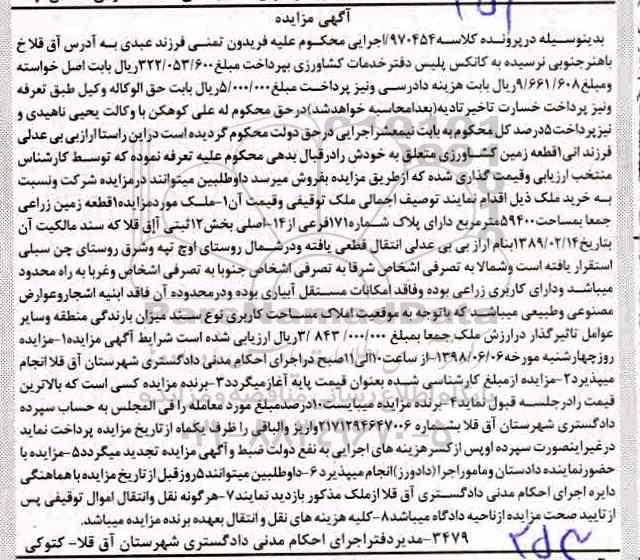 آگهی مزایده
بدینوسیله در پرونده کلاسه ۹۷۰۴۵۴/اجرایی محکوم علیه فریدون تمنی فرزند عبدی به آدرس آق قلا خ
باهنر جنوبی نرسیده به کانکس پلیس دفتر خدمات کشاورزی بپرداخت مبلغ ۳۲۲/۰۵۳/۶۰۰ریال بابت اصل خواسته
ومبلغ ۹/۶۶۱/۶۰۸ریال بابت هزینه دادرسی ونیز پرداخت مبلغ ۵/۰۰۰/۰۰۰ریال بابت حق الوکاله وکیل طبق تعرفه
ونیز پرداخت خسارت تاخیر تادیه(بعدامحاسبه خواهدشد)درحق محکوم له علی کوهکن با وکالت یحیی ناهیدی و
نیز پرداخت ۵درصد کل محکوم به بابت نیمعشر اجرایی در حق دولت محکوم گردیده است در این راستا ارازبی بی عدلی
فرزند انی ۱قطعه زمین کشاورزی متعلق به خودش رادرقبال بدهی محکوم علیه تعرفه نموده که توسط کارشناس
منتخب ارزیابی وقیمت گذاری شده که ازطریق مزایده بفروش میرسد داوطلبین میتوانند درمزایده شرکت ونسبت
به خرید ملک ذیل اقدام نمایند توصیف اجمالی ملک توقیفی وقیمت آن۱-ملک موردمزایده۱قطعه زمین زراعی
جمعا بمساحت۵۹۴۰۰مترمربع دارای پلاک شماره۱۷۱فرعی از۱۴-اصلی بخش۱۲ثبتی آق قلا که سند مالکیت آن
بتاریخ۱۳۸۹/۰۲/۱۴بنام اراز بی بی عدلی انتقال قطعی یافته ودرشمال روستای اوچ تپه وشرق روستای چن سبلی
استقرار یافته است وشمالا به تصرفی اشخاص شرقا به تصرفی اشخاص جنوبا به تصرفی اشخاص وغربا به راه محدود
میباشد ودارای کاربری زراعی بوده وفاقد امکانات مستقل آبیاری بوده ودرمحدوده آن فاقد ابنیه اشجاروعوارض
مصنوعی وطبیعی میباشد که باتوجه به موقعیت املاک مساحت کاربری نوع سند میزان بارندگی منطقه وسایر
عوامل تاثیر گذار درارزش ملک جمعا بمبلغ ۳/۸۴۳/۰۰۰/۰۰۰ریال ارزیابی شده است شرایط آگهی مزایده۱-مزایده
روزچهارشنبه مورخه۱۳۹۸/۰۶/۰۶-از ساعت۱۰الی۱۱صبح دراجرای احکام مدنی دادگستری شهرستان آق قلا انجام
میپذیرد۲-مزایده ازمبلغ کارشناسی شده بعنوان قیمت پایه آغاز میگردد۳-برنده مزایده کسی است که بالاترین
قیمت رادرجلسه قبول نماید۴-برنده مزایده میبایست۱۰درصدمبلغ مورد معامله را فی المجلس به حساب سپرده
دادگستری شهرستان آق قلا بشماره ۲۱۷۱۲۹۴۶۴۷۰۰۶واریز والباقی را ظرف یکماه ازتاریخ مزایده پرداخت نماید
درغیراینصورت سپرده اوپس ازکسر هزینه های اجرایی به نفع دولت ضبط و آگهی مزایده تجدید میگردد۵-مزایده با
حضور نماینده دادستان و مامور اجرا(دادورز)انجام میپذیرد۶-داوطلبین میتوانند۵روز قبل از تاریخ مزایده با هماهنگی
دایره اجرای احکام مدنی دادگستری آق قلا ازملک مذکور بازدید نمایند۷-هرگونه نقل وانتقال اموال توقیفی پس
از تایید صحت مزایده ازناحیه دادگاه میباشد۸-کلیه هزینه های نقل و انتقال بعهده برنده مزایده میباشد.
۳۴۷۹-مدیردفتراجرای احکام مدنی دادگستری شهرستان آق قلا- کتوکی